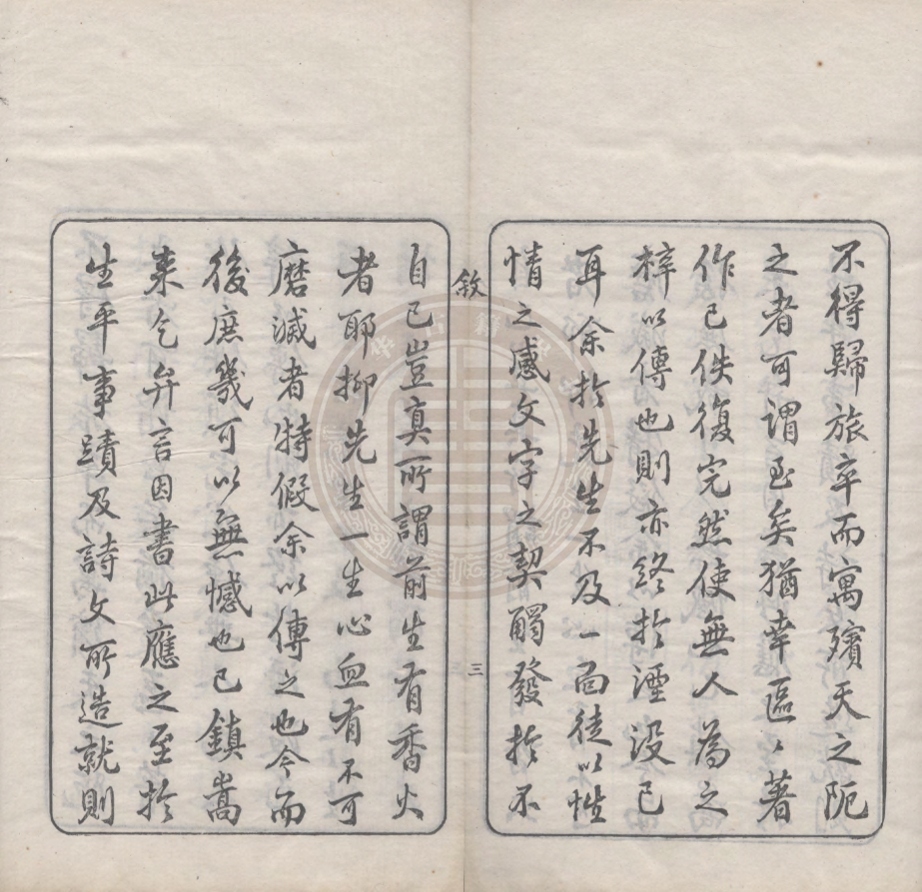 不得歸旅卒而寓殯天之阨
之者可謂至矣猶幸區〻著
作已佚復完然使無人為之
梓以傳也則亦終於湮沒已
耳余於先生不及一面徒以性
情之感文字之契觸發於不
敘
三
自已豈真所謂前生有香火
者耶抑先生一生心血有不可
磨滅者特假余以傳之也今而
後庶幾可以無憾也已鎮嵩
來乞弁言因書此應之至於
生平事蹟及詩文所造就則